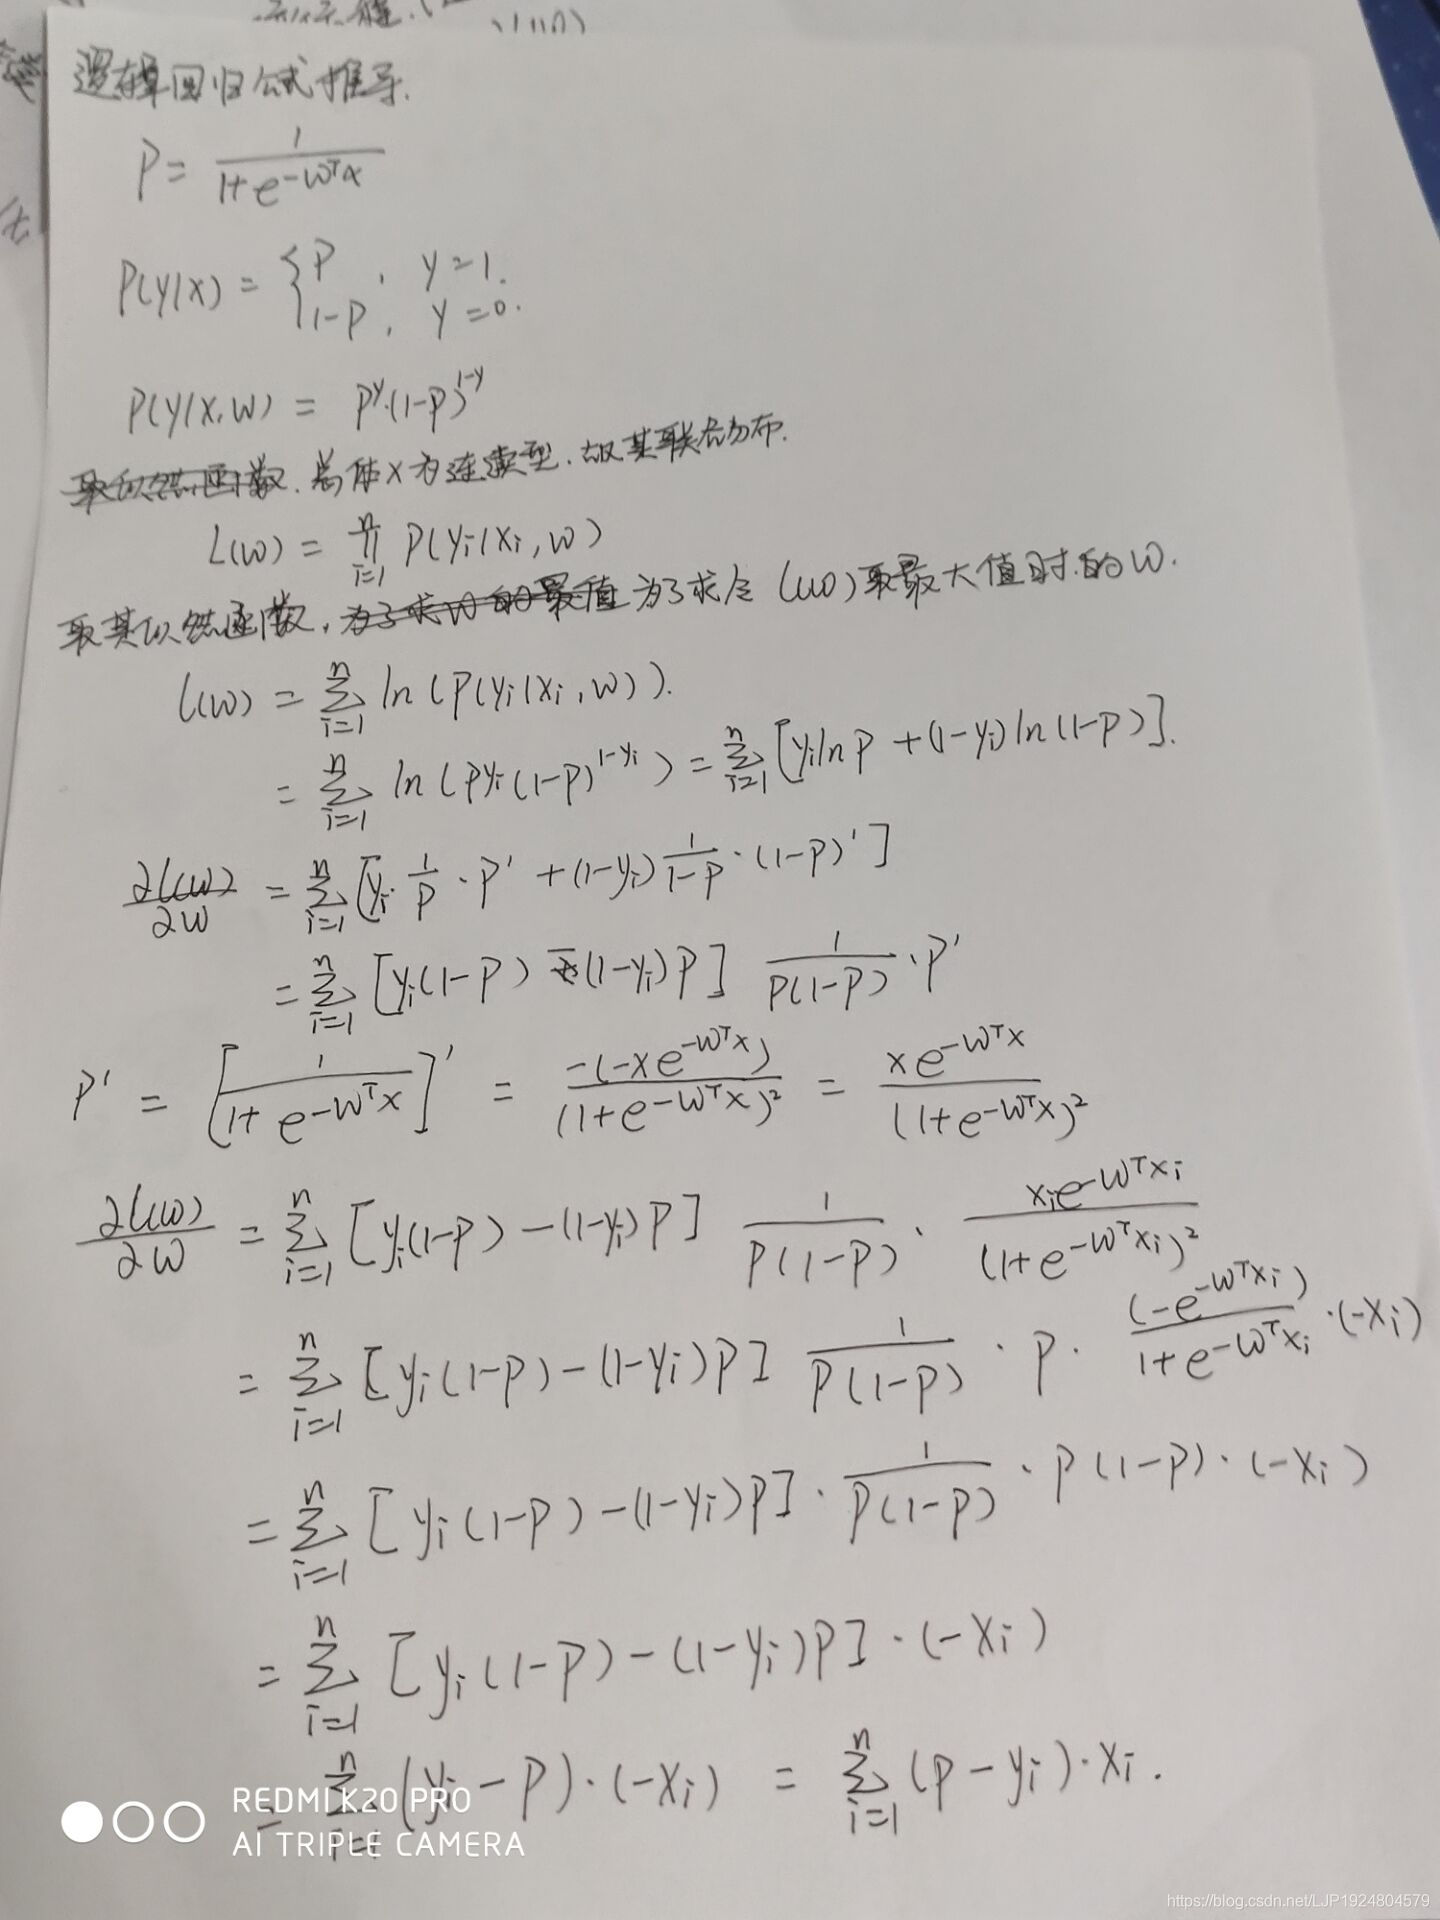 逻辑回归公式推导.
P = 1/(1+e^(-w^T x))
P(y|x) = { P , y=1.
1-P , y=0.
P(y|x,w) = P^y·(1-P)^(1-y)
取似然函数. 总体x为连续型.故其联合分布.
L(w) = ∏_{i=1}^{n} P(yi|xi,w)
取其似然函数,为了求w的最值 为了求令 l(w)取最大值时的w.
l(w) = ∑_{i=1}^{n} ln(P(yi|xi,w)).
= ∑_{i=1}^{n} ln(P^yi(1-P)^(1-yi)) = ∑_{i=1}^{n} [yi ln P + (1-yi) ln(1-P)].
∂l(w)/∂w = ∑_{i=1}^{n} [yi·1/P·P' + (1-yi) 1/(1-P)·(1-P)']
= ∑_{i=1}^{n} [yi(1-P) - (1-yi)P] 1/(P(1-P))·P'
P' = [1/(1+e^(-w^T x))]' = -(-xe^(-w^T x))/(1+e^(-w^T x))² = xe^(-w^T x)/(1+e^(-w^T x))²
∂l(w)/∂w = ∑_{i=1}^{n} [yi(1-P) - (1-yi)P] 1/(P(1-P))·xi e^(-w^T xi)/(1+e^(-w^T xi))²
= ∑_{i=1}^{n} [yi(1-P) - (1-yi)P] 1/(P(1-P))·P·(-e^(-w^T xi))/(1+e^(-w^T xi))·(-xi)
= ∑_{i=1}^{n} [yi(1-P) - (1-yi)P]·1/(P(1-P))·P(1-P)·(-xi)
= ∑_{i=1}^{n} [yi(1-P) - (1-yi)P]·(-xi)
= ∑_{i=1}^{n} (yi-P)·(-xi) = ∑_{i=1}^{n} (P-yi)·xi.
REDMI K20 PRO
AI TRIPLE CAMERA
https://blog.csdn.net/LJP1924804579